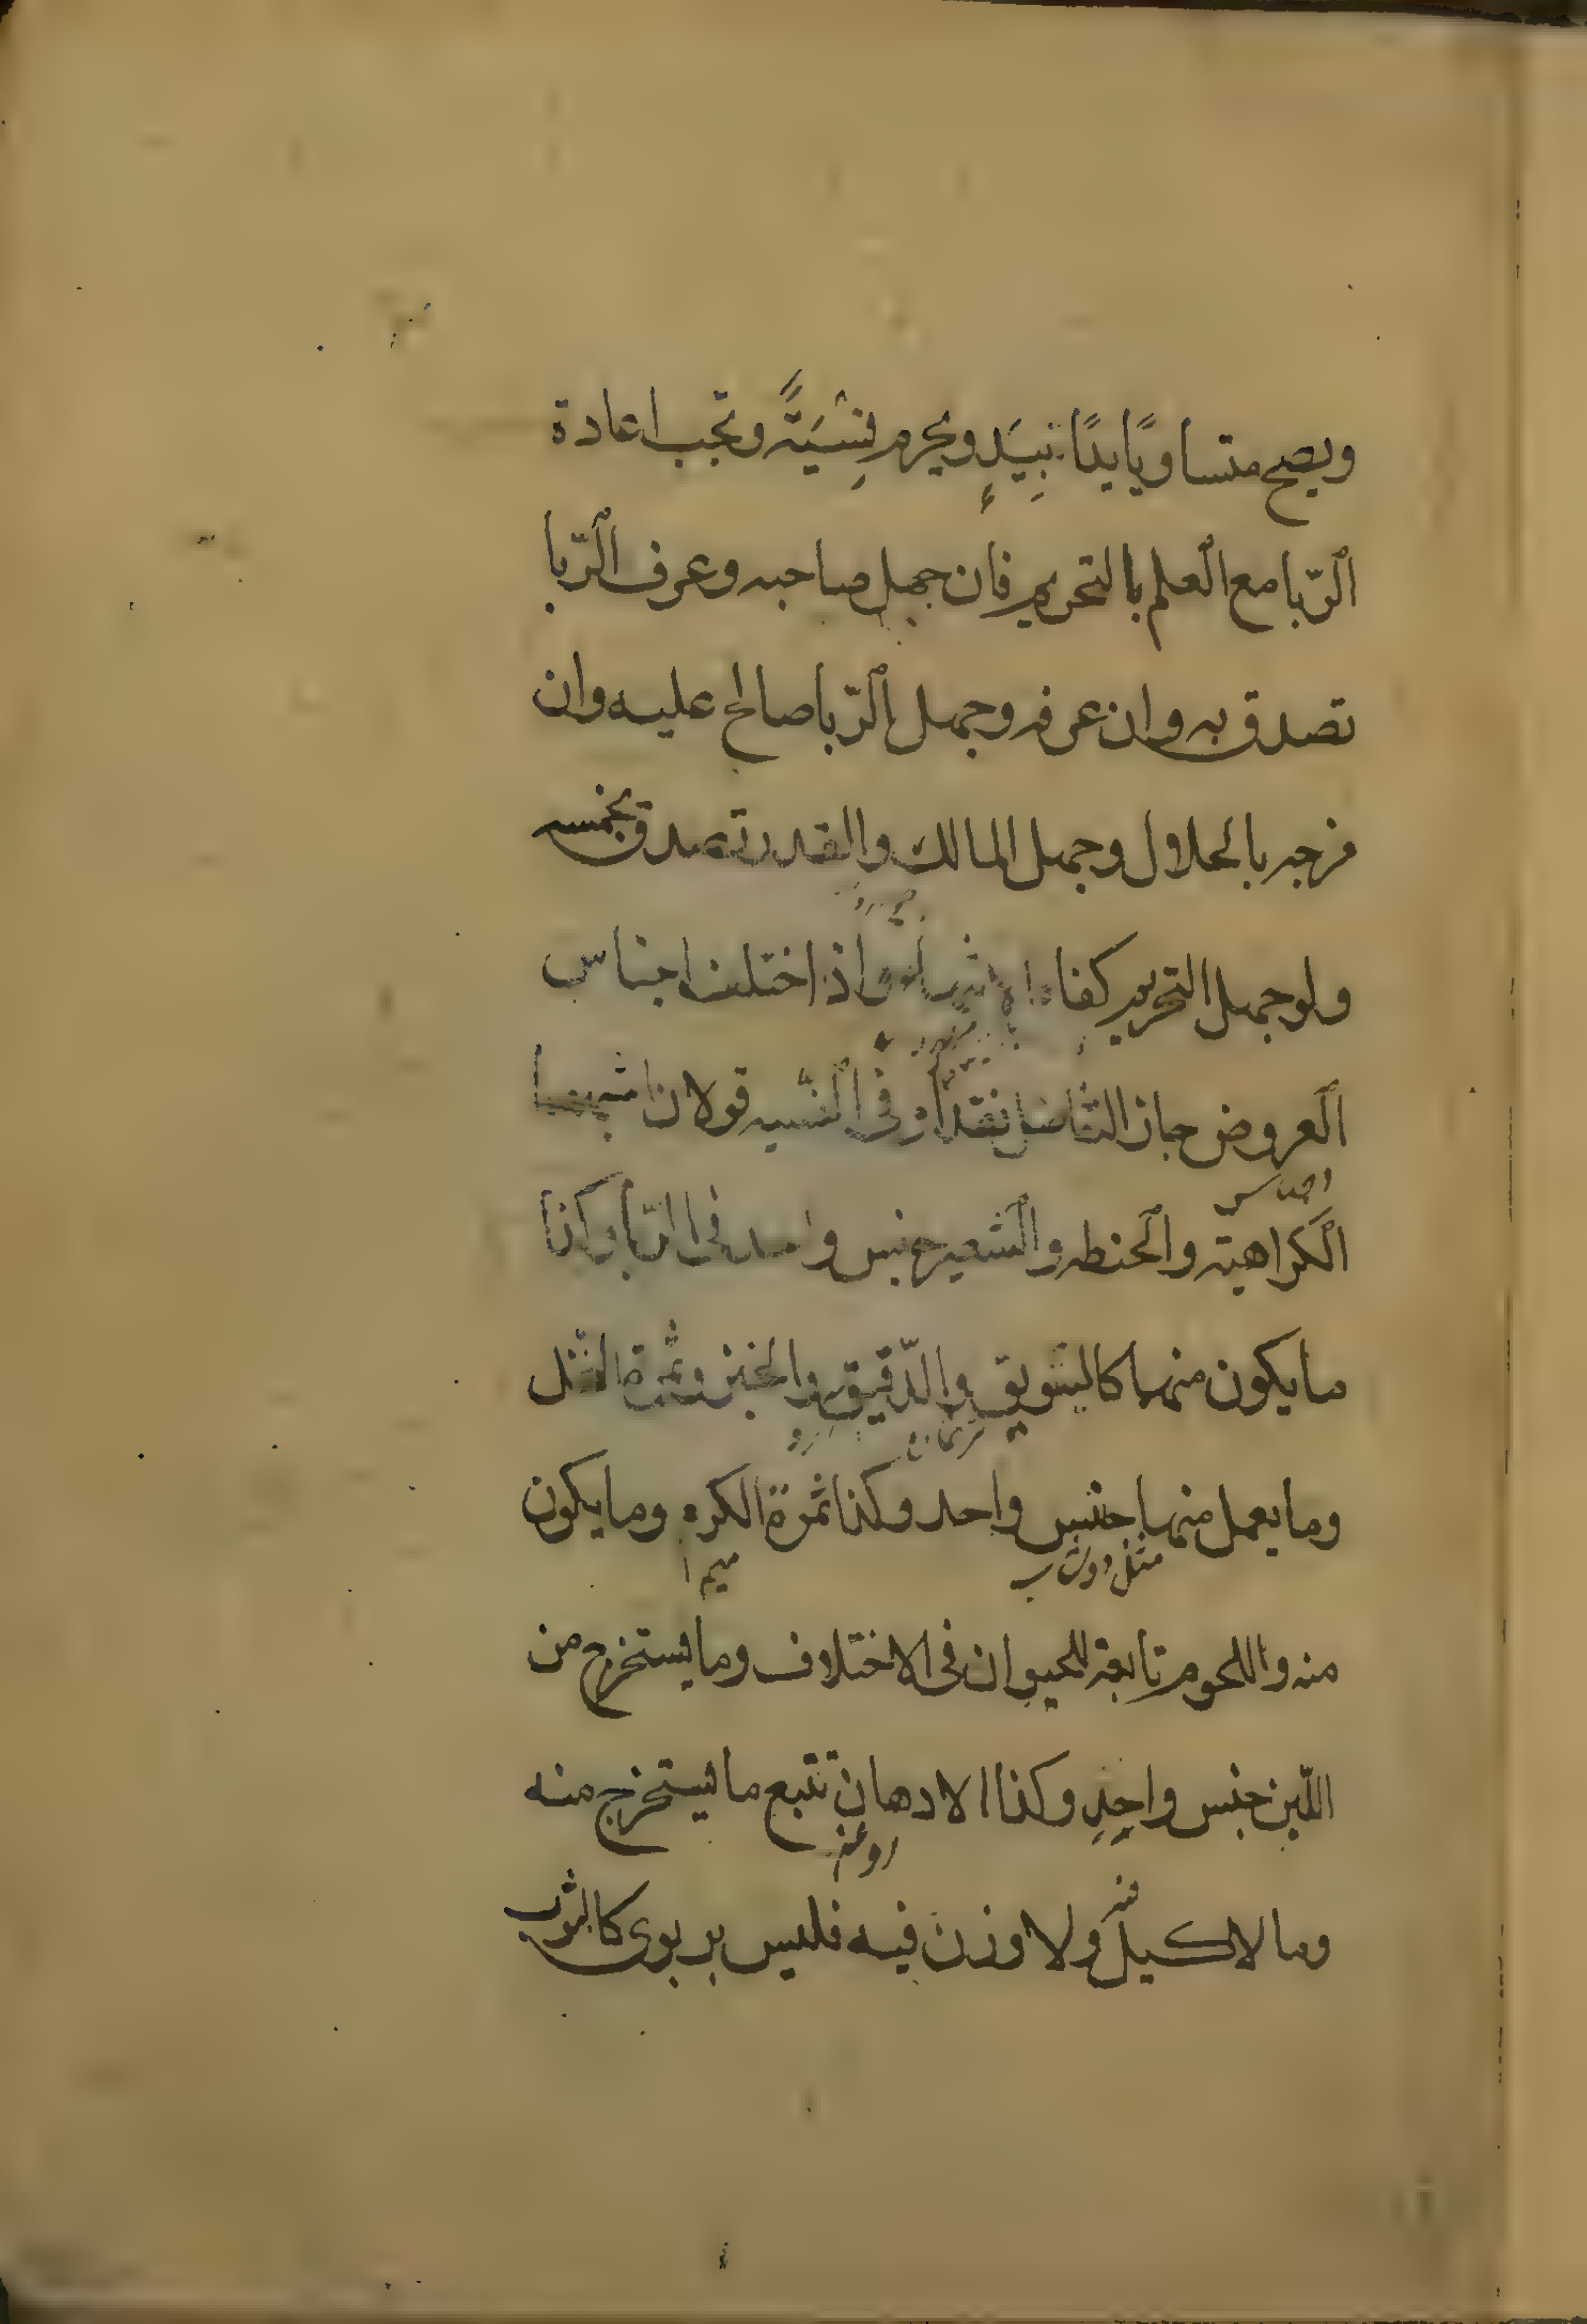 ويصح متساويًا يدًا بيَدٍ ويحرم نِسْيَةً وتجب اعادة
الرّبا مع العلم بالتحريم فان جهل صاحبه وعرف الرّبا
تصدق به وان عرفه وجهل الرّبا صالح عليه وان
مزجه بالحلال وجهل المالك والقدر تصدق بخمسه
ولو جهل التحريم كفاه واذا اختلفت اجناس
العروض جاز التفاضل نقدًا وفى النّسيه قولان اشبههما
الكراهية والحنطه والشعير جنس واحد فى الرّبا وكذا
ما يكون منهما كالسّويق والدّقيق والخبز وثمرة النخل
وما يعمل منها جنس واحد وكذا ثمرة الكرم وما يكون
ميم
منه واللحوم تابعة للحيوان فى الاختلاف وما يستخرج من
اللّبن جنس واحد وكذا الادهان تتبع ما يستخرج منه
روغن
وما لا كيل ولا وزن فيه فليس بربوى كالثوب